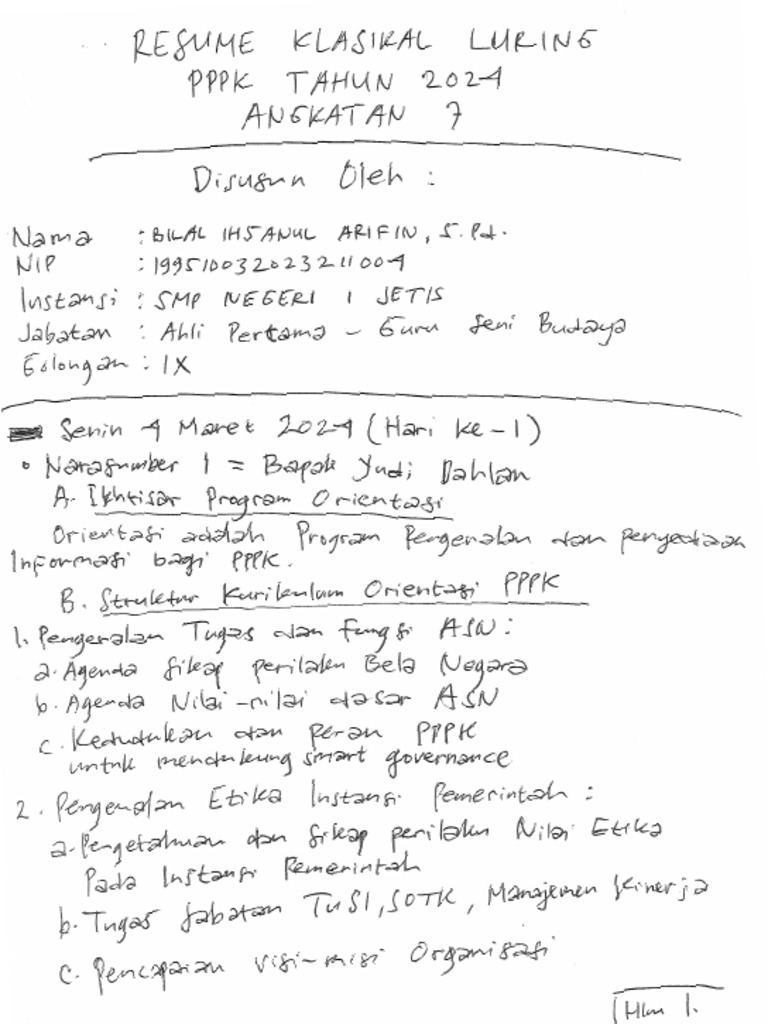 RESUME KLASIKAL LURING
PPPK TAHUN 2024
ANGKATAN 7
Disusun Oleh :
Nama : BILAL IHSANUL ARIFIN, S.Pd.
NIP : 199510032023211004
Instansi : SMP NEGERI 1 JETIS
Jabatan : Ahli Pertama - Guru Seni Budaya
Golongan : IX
Senin 4 Maret 2024 (Hari ke-1)
• Narasumber 1 = Bapak Yudi Dahlan
A. Ikhtisar Program Orientasi
Orientasi adalah Program Pengenalan dan penyediaan
Informasi bagi PPPK.
B. Struktur Kurikulum Orientasi PPPK
1. Pengenalan Tugas dan fungsi ASN :
a. Agenda Sikap perilaku Bela Negara
b. Agenda Nilai-nilai dasar ASN
c. Kedudukan dan peran PPPK
untuk mendukung smart governance
2. Pengenalan Etika Instansi Pemerintah :
a. Pengetahuan dan Sikap perilaku Nilai Etika
Pada Instansi Pemerintah
b. Tugas Jabatan TUSI, SOTK, Manajemen Kinerja
c. Pencapaian visi-misi Organisasi
Hlm 1.